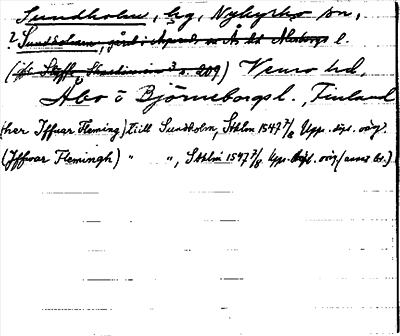 Sundholm, hg, Nykyrko sn,
? Sundholm, gård i
(jfr Styffe, Skandinavien 3 s. 209) Vemo hd,
Åbo o Björneborgs l., Finland
(her Iffuar Fleming) tiill Sundholm, Sthlm 1547 7/8 Upps. dipl. orig.
(Iffwar Flemingh) " ", Sthlm 1547 7/8 Upps. dipl. orig (annat br.)